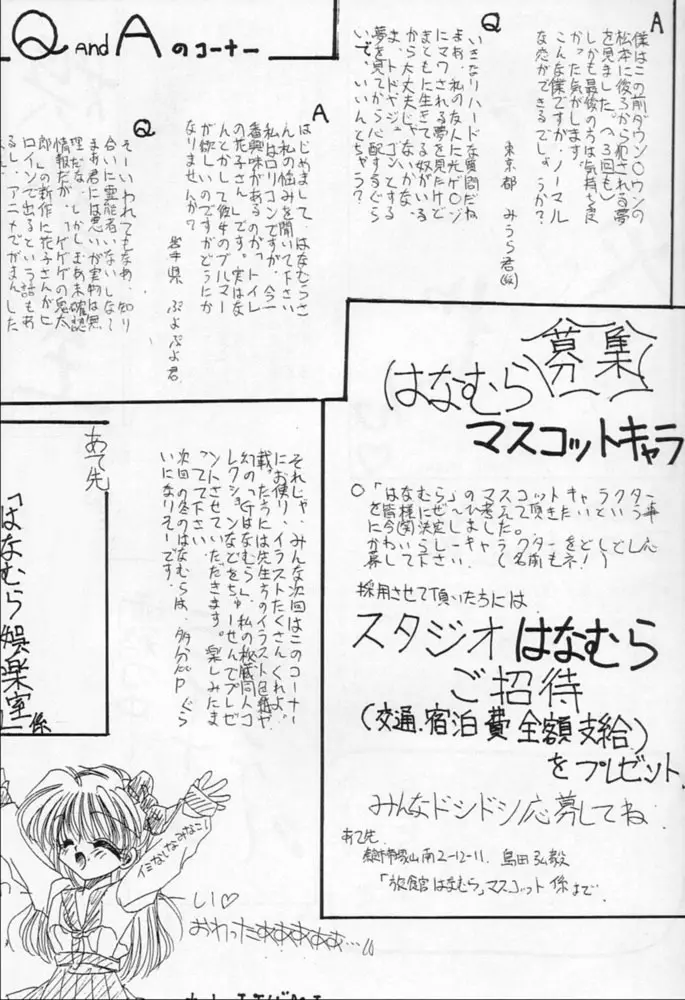 Q AND A のコーナー
A
僕はこの前ダウン〇ウンの
松本に後ろから犯される夢
を見ました。(へ3回も)
しかも最後の方は気持ち良
かった気がします。
こんな僕ですが、ノーマル
な恋ができるでしょうか?
東京都 みうら君
Q
いきなりハードな質問だね
よぉ、私の友人に光ゲ〇ジ
にマワされる夢を見たけど
まともに生きてる奴がいる
から大丈夫じゃないかな。
夢を見てから心配するぐら
いで、いいんとちゃう?
A
はじめまして、はなむらさ
ん私の悩みを聞いて下さい
私はロリコンですが、今一
番興味があるのが「トイレ
の花子さん」です。実はな
んとかして彼女のブルマー
が欲しいのですがどうにか
なりませんか?
岩手県 ぷよぷよ君
Q
そーいわれてもなぁ、知り
合いに霊能者いないしなぁ
まぁ君には悪いが実物は無
理だな、しかしまぁ未確認
情報だが、「ゲゲゲの鬼太
郎」の新作に花子さんがヒ
ロインで出るという話もあ
るし、アニメでがまんした
募集
はなむら
マスコットキャラ
○「はなむら」のマスコットキャラクター
を皆様に考えて頂きたいという事
かわいらしーキャラクターをどしどし応
募して下さい。(名前もネ!)
採用させて頂いた方には
スタジオはなむら
ご招待
(交通、宿泊費全額支給)
をプレゼント
みんなドシドシ応募してね
あて先
南2-12-11 島田弘毅
「旅館はなむら」マスコット係まで
それじゃ、みんな次回はこのコーナー
にお便り、イラストたくさんくれよ。
載った方には先生方のイラスト色紙や
幻の「Gはなむら」、私の秘蔵同人コ
レクションなどをちゅーせんでプレゼ
ントさせていただきます。楽しみにま
ってて下さい。
次回の冬のはなむらは、多分
いになりそーです。
あて先
「はなむら娯楽室」係
しい♡
おわったあああああぁ…